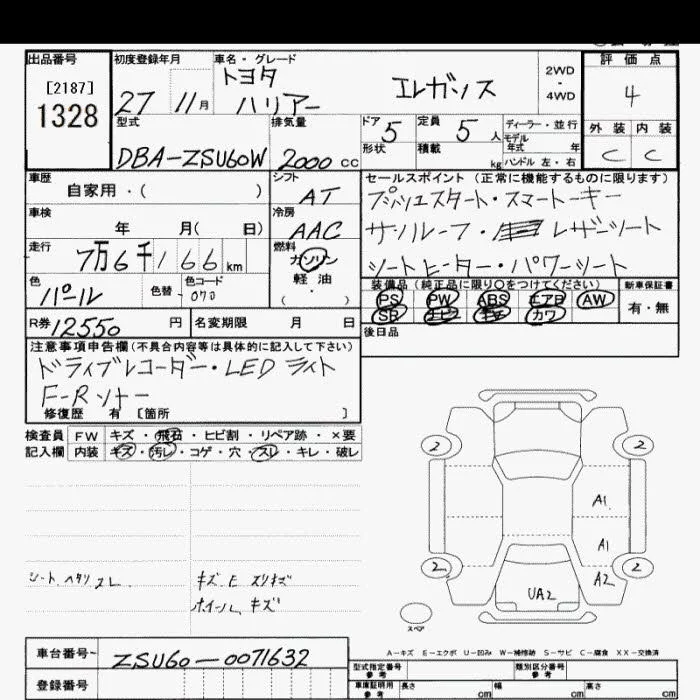 出品番号 初度登録年月 車名・グレード 評価点
[2187]
1328
27 11月
トヨタ
ハリアー
エレガンス
2WD
・
4WD
4
外装 内装
C C
型式 排気量 ドア 定員 ディーラー・並行
DBA-ZSU60W 2000 cc
5 5 人
モデル年式 年
形状 積載 kg ハンドル 左・右
車歴 シフト セールスポイント (正常に機能するものに限ります)
自家用・( ) AT
プッシュスタート・スマートキー
車検 冷房
年 月( 日) AAC
サンルーフ・ レザーシート
走行 燃料
7万6千166km ガソリン
シートヒーター・パワーシート
軽油
・( )
色 色替 色コード
パール 070
装備品 (純正品に限り○をつけてください) 新車保証書
PS PW ABS エアB AW
SB ナビ カワ
有・無
R券 12550 円 名変期限 月 日
後日品
注意事項申告欄 (不具合内容等は具体的に記入して下さい)
ドライブレコーダー・LEDライト
F-Rソナー
修復歴 有 [箇所 ]
検査員 FW キズ・飛石・ヒビ割・リペア跡・×要
記入欄 内装 キズ・汚レ・コゲ・穴・スレ・キレ・破レ
2 2
A1
A1
2 2
A2
UA2
シート ヘタリ スレ
キズ E スリキズ
ホイール キズ
スペア
A-キズ E-エクボ U-凹み W-補修跡 S-サビ C-腐食 XX-交換済
車台番号 ZSU60-0071632
型式指定番号 参考 類別区分番号 参考
登録番号
車庫証明用 参考 長さ cm 幅 cm 高さ cm